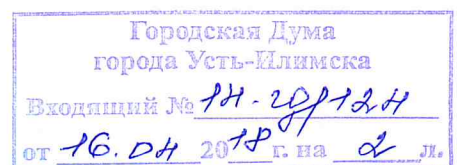 Городская Дума
города Усть-Илимска
Входящий № 14-гд/124
от 16.04 2018 г. на 2 л.